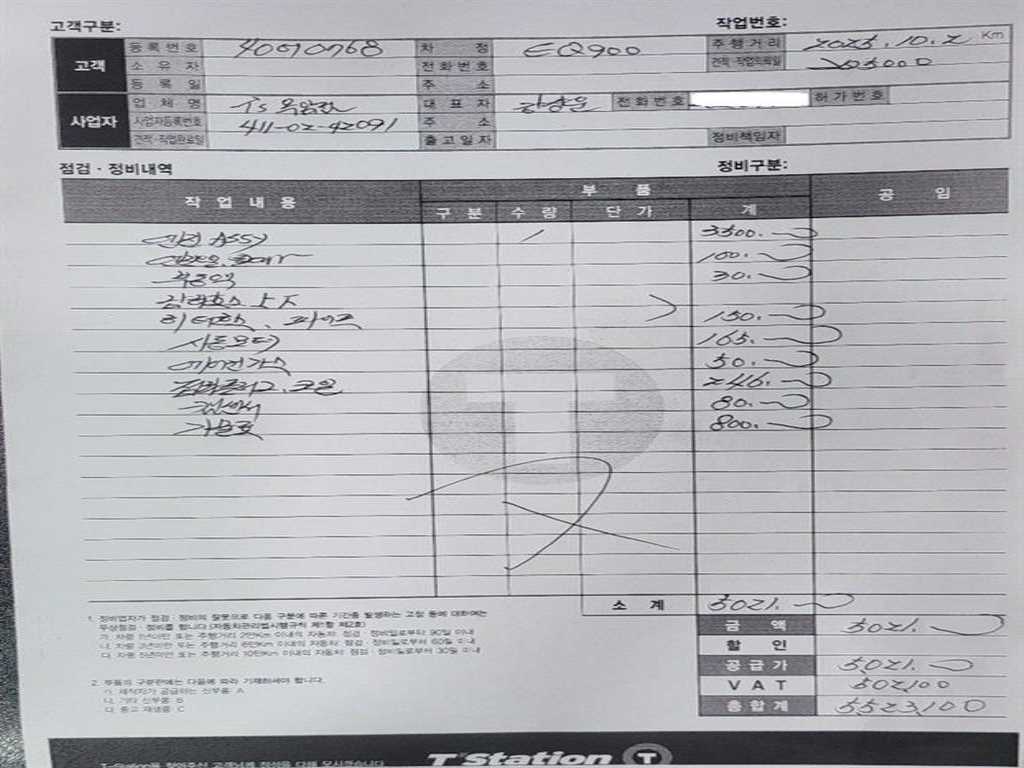 고객구분: 작업번호:
고객 등록번호 차 정 EQ900 주행거리 2025.10.2 Km
소유자 전화번호 견적·작업의뢰일
등록일 주 소
사업자 업체명 T's 대표자 전화번호 허가번호
사업자등록번호 411-02-42091 주 소
견적·작업완료일 출고일자 정비책임자
점검·정비내역 정비구분:
작업내용 부 품 공 임
구분 수량 단가 계
엔진 ASSY 1 3300.
100.
부동액 30.
히터호스, 파이프 150.
시동모터 165.
에어컨가스 50.
점화플러그, 코일 246.
80.
800.
소 계 5021.
금 액 5021.
할 인
공급가 5021.
VAT 502100
총합계 5523100
1. 정비업자가 점검·정비의 잘못으로 다음 구분에 따른 기간중 발생하는 고장 등에 대하여는
무상점검·정비를 합니다.(자동차관리법시행규칙 제1항 제2호)
가. 차령 1년미만 또는 주행거리 2만Km 이내의 자동차: 점검·정비일로부터 90일 이내
나. 차령 3년미만 또는 주행거리 6만Km 이내의 자동차: 점검·정비일로부터 60일 이내
다. 차령 5년미만 또는 주행거리 10만Km 이내의 자동차: 점검·정비일로부터 30일 이내
2. 부품의 구분란에는 다음에 따라 기재하셔야 합니다.
가. 제작자가 공급하는 신부품: A
나. 기타 신부품: B
다. 중고 재생품: C
T-Station을 찾아주신 고객님께 정성을 다해 모시겠습니다 T'Station T